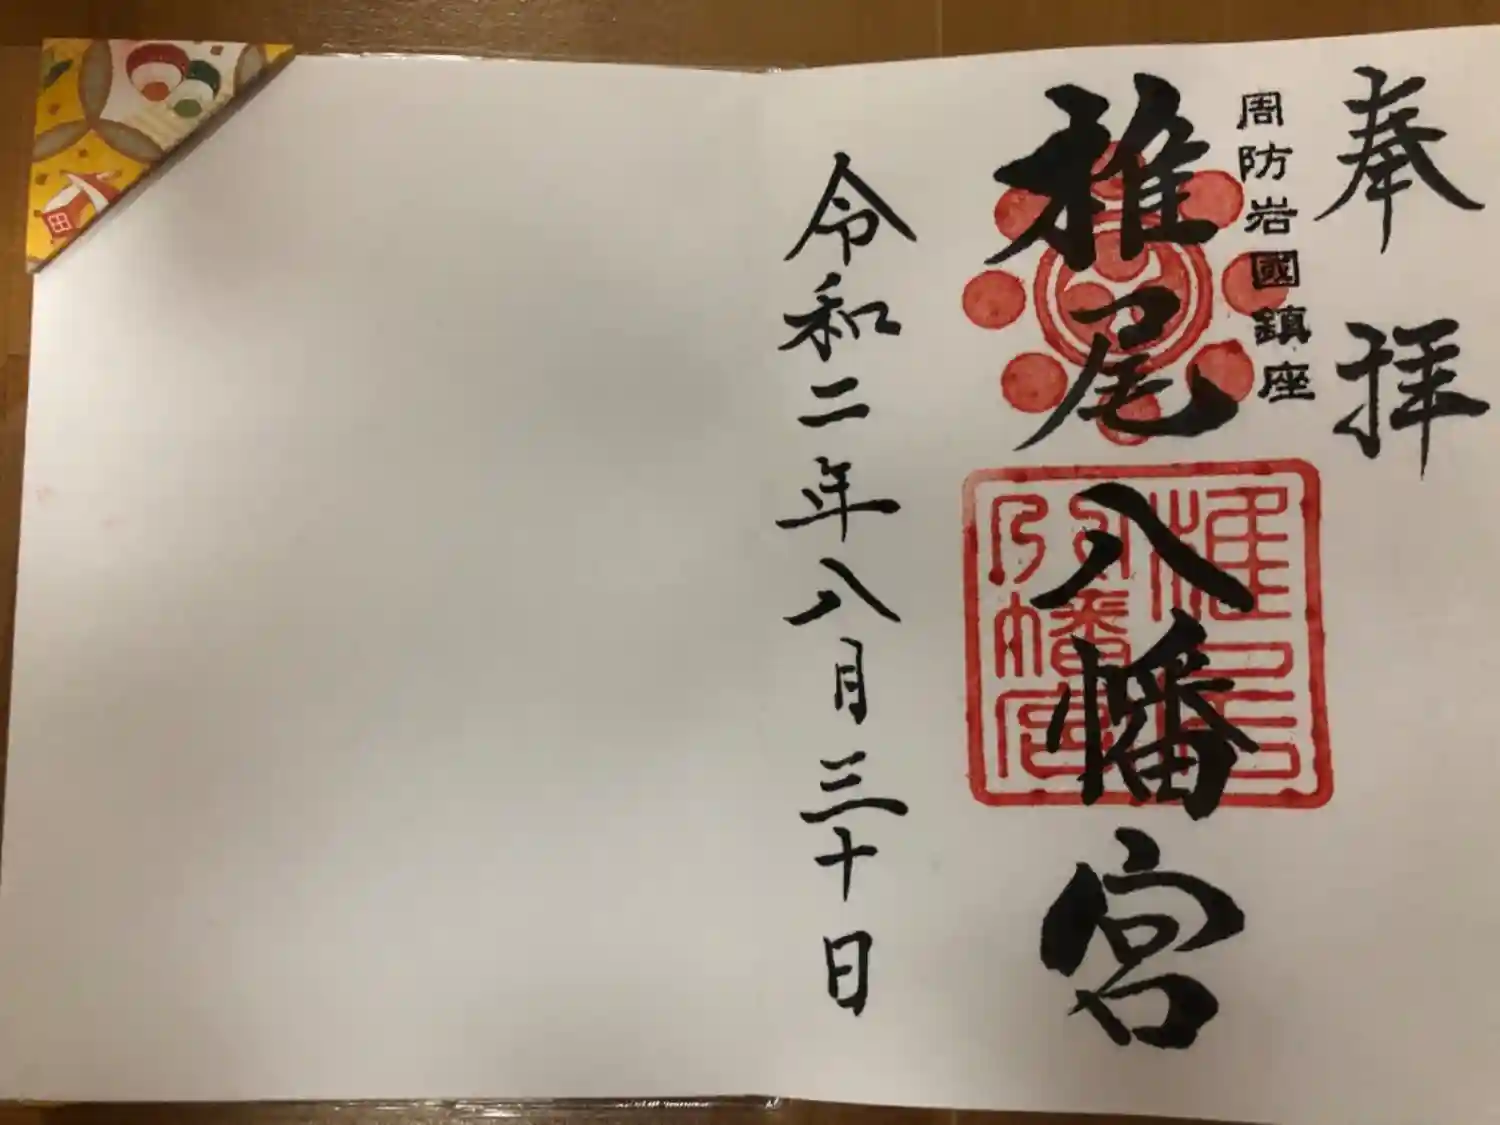 奉拝
周防岩國鎮座
椎尾八幡宮
椎尾
八幡宮
令和二年八月三十日